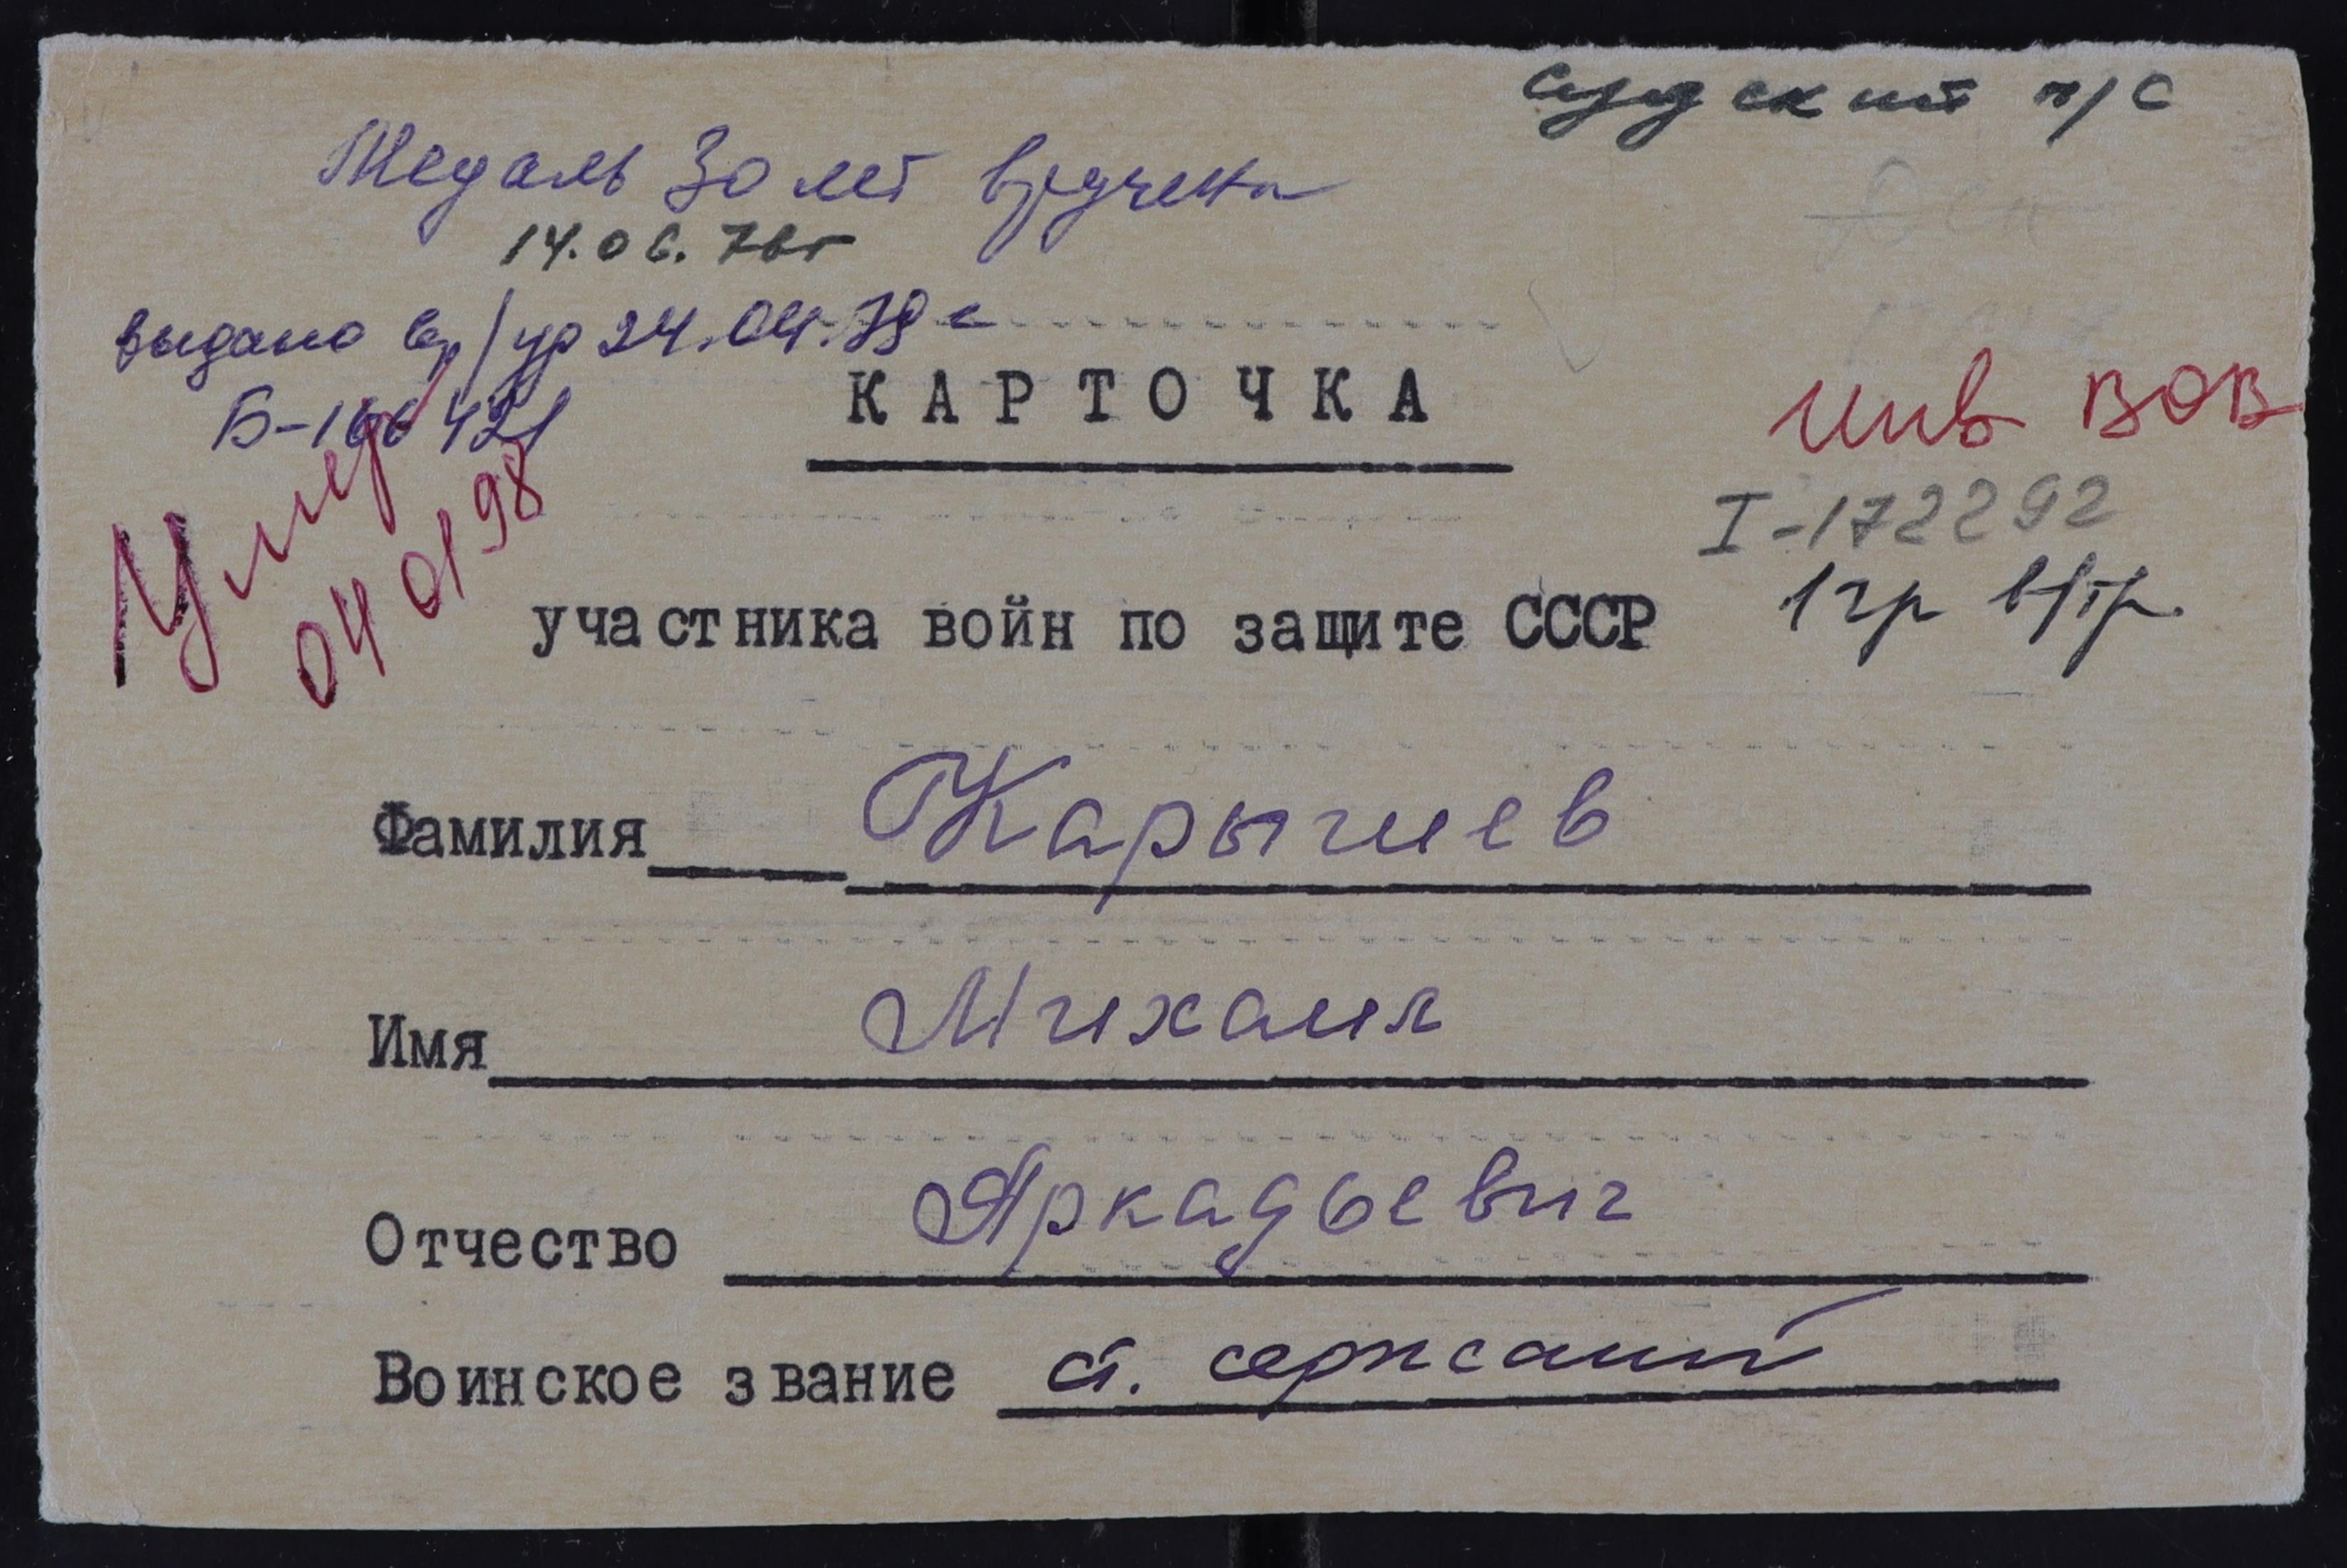 Судский п/с
Медаль 30 лет вручена
14.06.76г
выдано в/ур 24.04.79г
Б-166421
КАРТОЧКА
инв ВОВ
I-172292
1 гр в/тр.
Умер
04 01 98
участника войн по защите СССР
Фамилия Карычев
Имя Михаил
Отчество Аркадьевич
Воинское звание ст. сержант